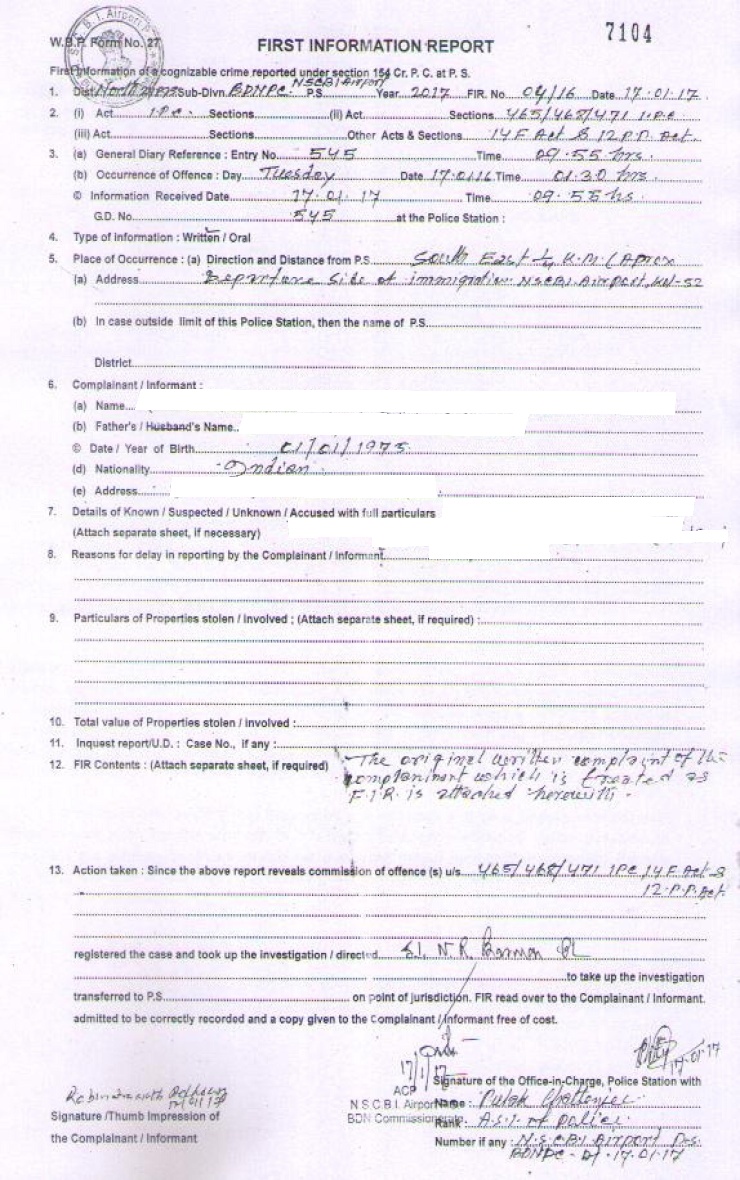 N. S. C. B. I. Airport P
7104
W.B.P. Form No. 27
FIRST INFORMATION REPORT
First Information of a cognizable crime reported under section 154 Cr. P. C. at P. S.
1. Dist. North 24 PGS Sub-Divn. BDNPC P.S. NSCBI Airport Year 2017 FIR. No. 04/16 Date 17.01.17
2. (i) Act I.P.C. Sections (ii) Act Sections 465/468/471 I.P.C
(iii) Act Sections Other Acts & Sections 14 F Act & 12 P.P. Act.
3. (a) General Diary Reference : Entry No. 545 Time 09.55 hrs.
(b) Occurrence of Offence : Day Tuesday Date 17.01.16 Time 01.30 hrs.
© Information Received Date 17.01.17 Time 09.55 hs.
G.D. No. 545 at the Police Station :
4. Type of Information : Written / Oral
5. Place of Occurrence : (a) Direction and Distance from P.S. South East K.M (Aprox
(a) Address Departure side at immigration NSCBI Airport, Kol-52
(b) In case outside limit of this Police Station, then the name of P.S.
District
6. Complainant / Informant :
(a) Name
(b) Father's / Husband's Name
© Date / Year of Birth 01/01/1975
(d) Nationality Indian
(e) Address
7. Details of Known / Suspected / Unknown / Accused with full particulars
(Attach separate sheet, if necessary)
8. Reasons for delay in reporting by the Complainant / Informent
9. Particulars of Properties stolen / Involved ; (Attach separate sheet, if required) :
10. Total value of Properties stolen / involved :
11. Inquest report/U.D. : Case No., if any :
12. FIR Contents : (Attach separate sheet, if required) The original written complaint of the
complaninant which is treated as
F.I.R. is attached herewith.
13. Action taken : Since the above report reveals commission of offence (s) u/s. 465/468/471 IPC, 14 F. Act &
12.P.P. Act.
registered the case and took up the investigation / directed S.I. N.R. Barman
to take up the investigation
transferred to P.S. on point of jurisdiction. FIR read over to the Complainant / Informant.
admitted to be correctly recorded and a copy given to the Complainant / Informant free of cost.
17/1/17
17.01.17
ACP
Signature of the Office-in-Charge, Police Station with
N.S.C.B.I. Airport
Name : Pulak Chatterjee
BDN Commissionerate
Rank : A.S.I of Police
Number if any : N.S.C.B.I Airport P.S.
BDNPC - Dt - 17.01.17
Signature /Thumb Impression of
the Complainant / Informant